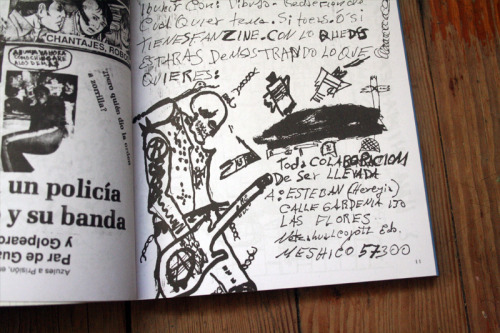 CHANTAJES, ROBO
"¿Pero quién dio la orden
a zorrilla?
un policía
y su banda
Par de Gua
y Golpearo
Azules a Prisión, en
Cualquier tema. Si tores. O si
TIENES FANZINE. CON LO QUE DES
ESTARAS DEMOSTRANDO LO QUE
QUIERES:
Toda COLABORACION
De Ser LLEVADA
A: ESTEBAN (Heregia)
CALLE GARDENIA 170
LAS FLORES
Netzahualcoyotl Edo.
MESHICO 57300